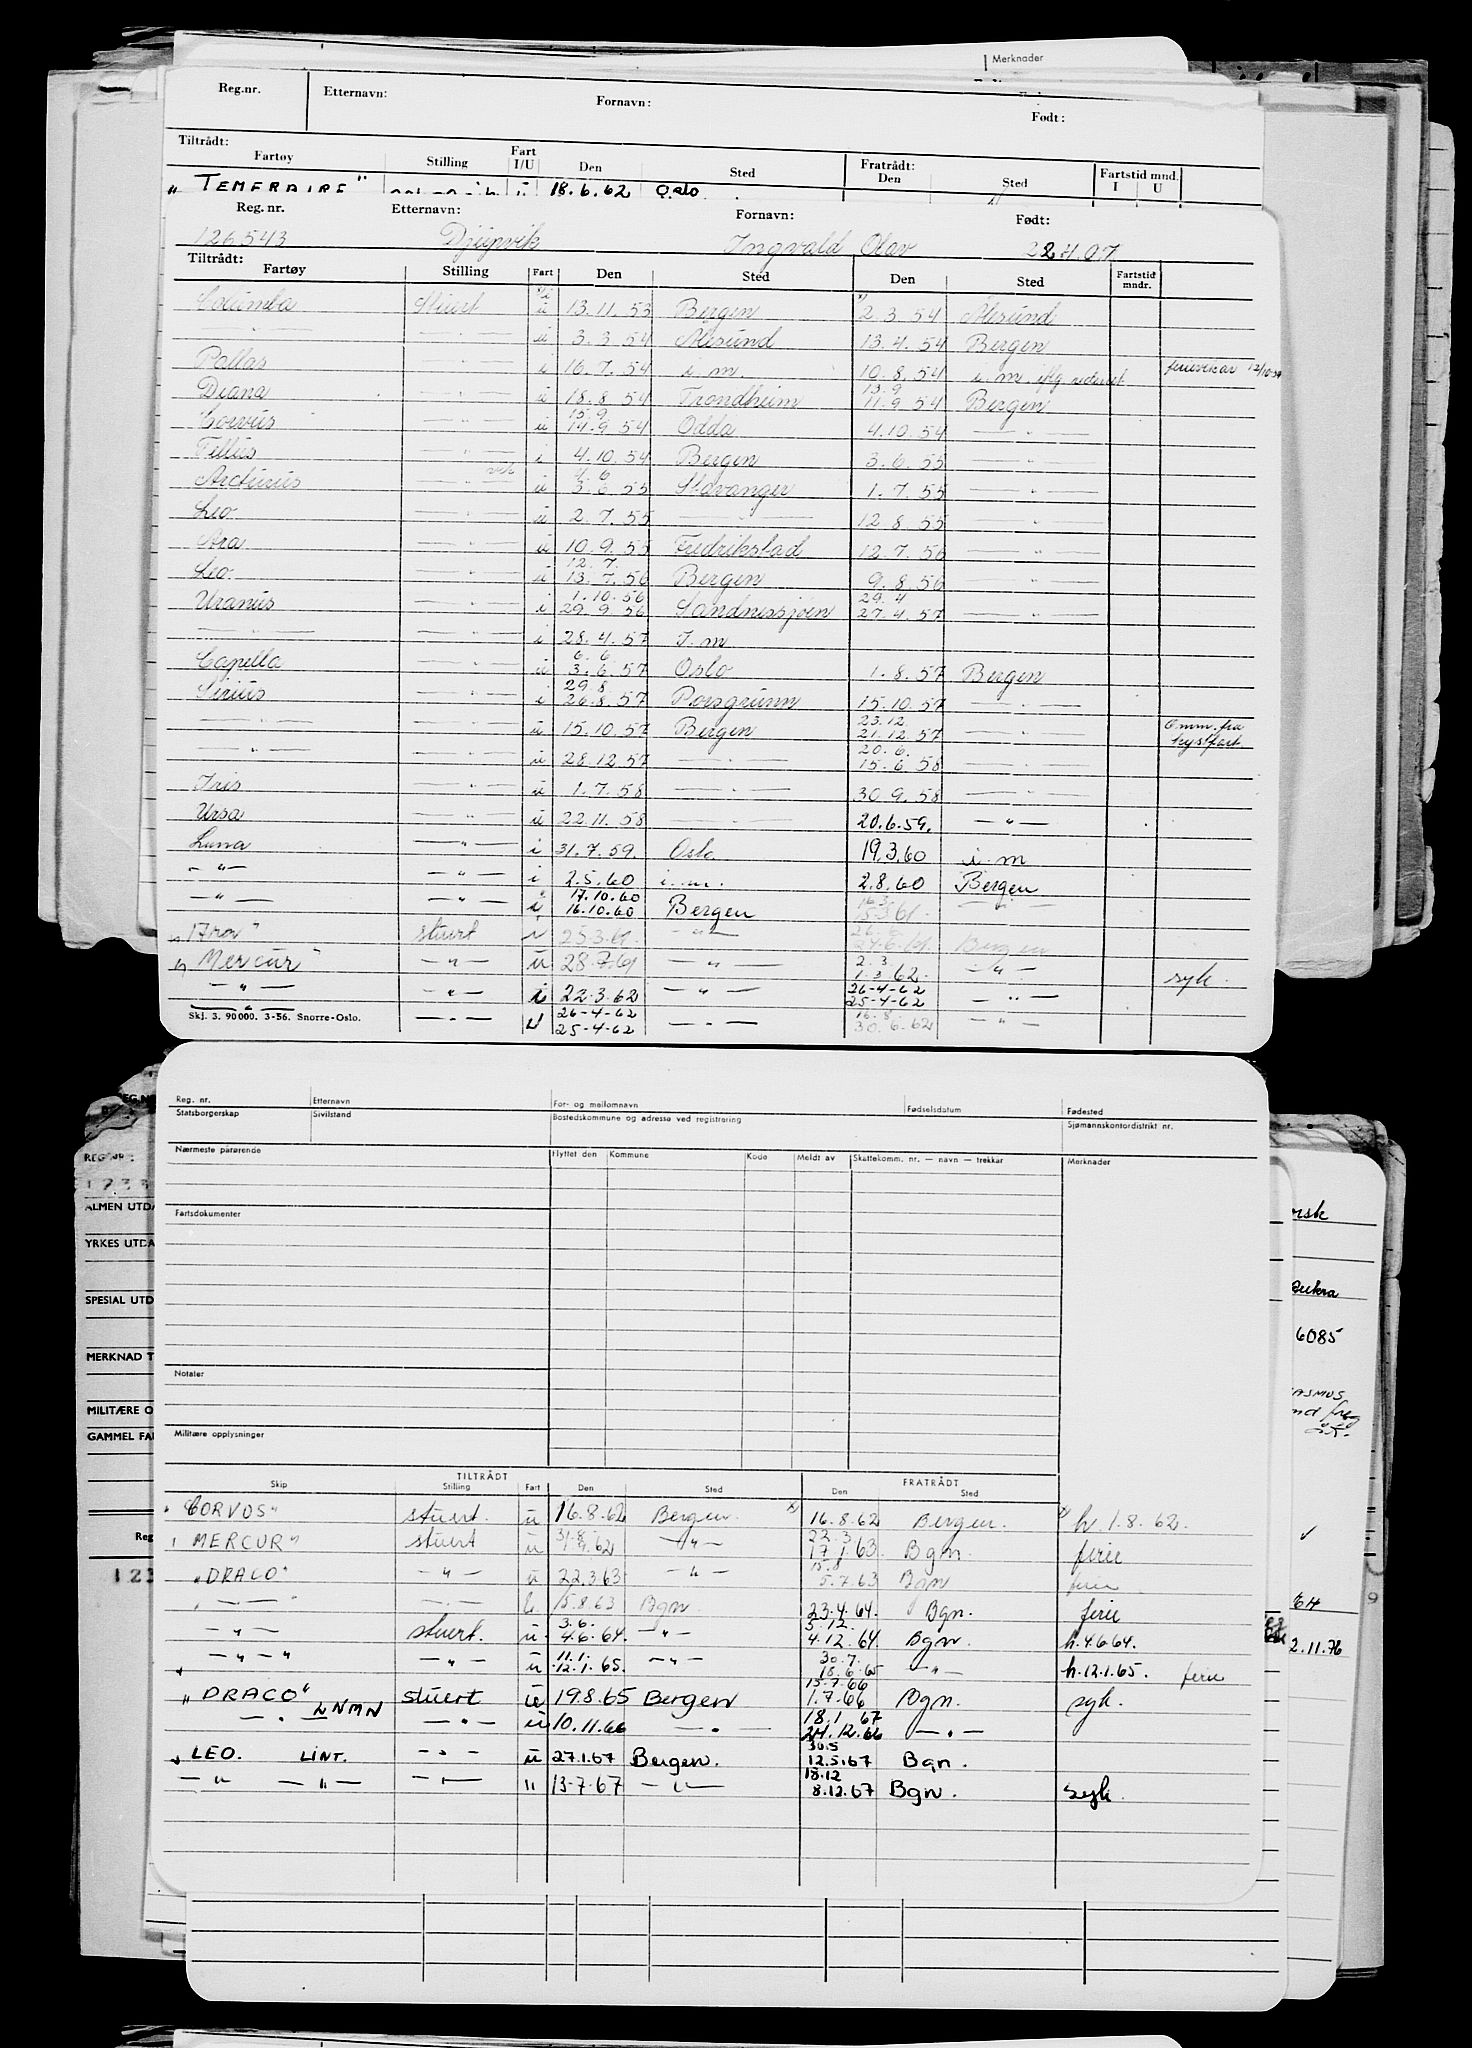 Merknader
Reg.nr. Etternavn: Fornavn: Født:
Tiltrådt: Fart Fratrådt: Fartstid mnd.
Fartøy Stilling I/U Den Sted Den Sted I U
" TEMERAIRE " 18.6.62 Oslo
Reg. nr. Etternavn: Fornavn: Født:
126543 Djupvik Ingvald Olav 22.4.07
Tiltrådt: Fartøy Stilling Fart Den Sted Den Sted Fartstid mndr.
Columba Stuert u 13.11.53 Bergen x) 2.3.54 Ålesund
— " — — " — u 3.3.54 Ålesund 13.4.54 Bergen
Pallas — " — i 16.7.54 i.m. 10.8.54 i.m. iflg rederiet ferievikar 12/10-54
13.9
Diana — " — u 18.8.54 Trondheim 11.9.54 Bergen
15.9
Corvus — " — u 14.9.54 Odda 4.10.54 — " —
Tellus — " — i 4.10.54 Bergen 3.6.55 — " —
4.6
Arcturus — " — u 3.6.55 Stavanger 1.7.55 — " —
Leo — " — u 2.7.55 — " — 12.8.55 — " —
Ara — " — u 10.9.55 Fredrikstad 12.7.56 — " —
12.7.
Leo — " — u 13.7.56 Bergen 9.8.56 — " —
1.10.56 29.4
Uranus — " — i 29.9.56 Sandnessjøen 27.4.57 — " —
— " — — " — i 28.4.57 I.m
6.6
Capella — " — u 3.6.57 Oslo 1.8.57 Bergen
29.8
Sirius — " — i 26.8.57 Porsgrunn 15.10.57 — " —
23.12
— " — — " — u 15.10.57 Bergen 21.12.57 — " — Omm. fra kystfart
20.6.
— " — — " — u 28.12.57 — " — 15.6.58 — " —
Iris — " — u 1.7.58 — " — 30.9.58 — " —
Ursa — " — u 22.11.58 — " — 20.6.59. — " —
Luna — " — i 31.7.59. Oslo 19.3.60 i.m
— " — — " — i 2.5.60 i.m. 2.8.60 Bergen
17.10.60 16.3.
— " — — " — i 16.10.60 Bergen 15.3.61. — " —
26.6.
" Ara " stuert i 25.3.61. — " — 24.6.61. Bergen
2.3.
" Mercur " — " — u 28.7.61 — " — 1.3.62. — " — syk.
26-4-62
— " — — " — i 22.3.62 — " — 25-4-62 — " —
26-4-62 16.8.
— " — — " — u 25-4-62 — " — 30.6.62 — " —
Skj. 3. 90000. 3-56. Snorre-Oslo.
Reg. nr. Etternavn For- og mellomnavn Fødselsdatum Fødested
Statsborgerskap Sivilstand Bostedskommune og adresse ved registrering Sjømannskontordistrikt nr.
Nærmeste pårørende Flyttet den Kommune Kode Meldt av Skattekomm. nr. — navn — trekkår Merknader
Fartsdokumenter
Notater
Militære opplysninger
TILTRÅDT FRATRÅDT
Skip Stilling Fart Den Sted Den Sted
" CORVUS " stuert. u 16.8.62 Bergen. x) 16.8.62 Bergen. x) h. 1.8.62.
31.8. 22.3
" MERCUR " stuert u 62 — " — 17.1.63. Bgn. ferie
15.8
" DRACO " — " — u 22.3.63 — " — 5.7.63 Bgn ferie
" — " — — " — u 15.8.63 Bgn. 23.4.64. Bgn. ferie
3.6. 5.12.
— " — stuert. u 4.6.64. — " — 4.12.64. Bgn. h.4.6.64.
11.1. 30.7.
— " — " — " — u 12.1.65. — " — 18.6.65 — " — h.12.1.65. ferie
15.7.66
" DRACO " stuert u 19.8.65 Bergen 1.7.66 Bgn. syk.
18.1 67
— " — LNMN — " — u 10.11.66 — " — 24.12.66 — " —
30.5
" LEO. LINT. — " — u 27.1.67 Bergen. 12.5.67 Bgn.
18.12
— " — — " — — " — " 13-7-67 — " — 8.12.67 Bgn. syk.
REG.NR:
123
ALMEN UTDA
YRKES UTDA
SPESIAL UTD
MERKNAD T
MILITÆRE O
GAMMEL FA
Reg
123
orsk
aukra
6085
ASMUS
2.11.76
9